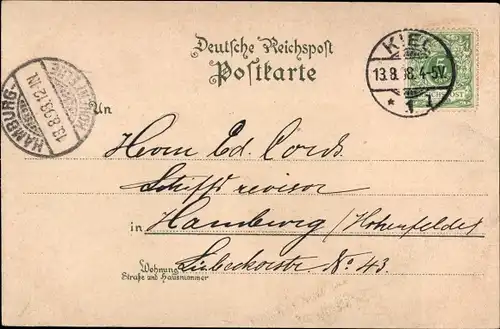 Deutsche Reichspost
Postkarte
KIEL
13.8.98.4-5V.
* 1 l
5
HAMBURG
13.8.98.12.1N.
An
Herrn Ed. Cords
Schiffsrevisor
in Hamburg / Hohenfelde
Lübeckerstr No 43.
Wohnung
Straße und Hausnummer